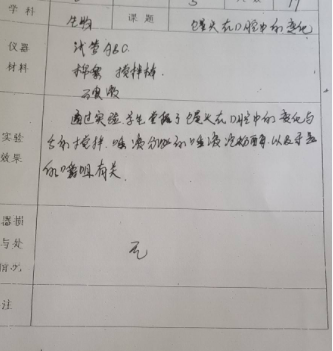 学科 生物 课题 馒头在口腔中的变化
仪器 试管ABC
材料 棉絮 搅拌棒
碘液
通过实验学生掌握了馒头在口腔中的变化与
实验 舌的搅拌、唾液分泌的唾液淀粉酶以及牙齿
效果 的咀嚼有关
器损
与处 无
情况
注